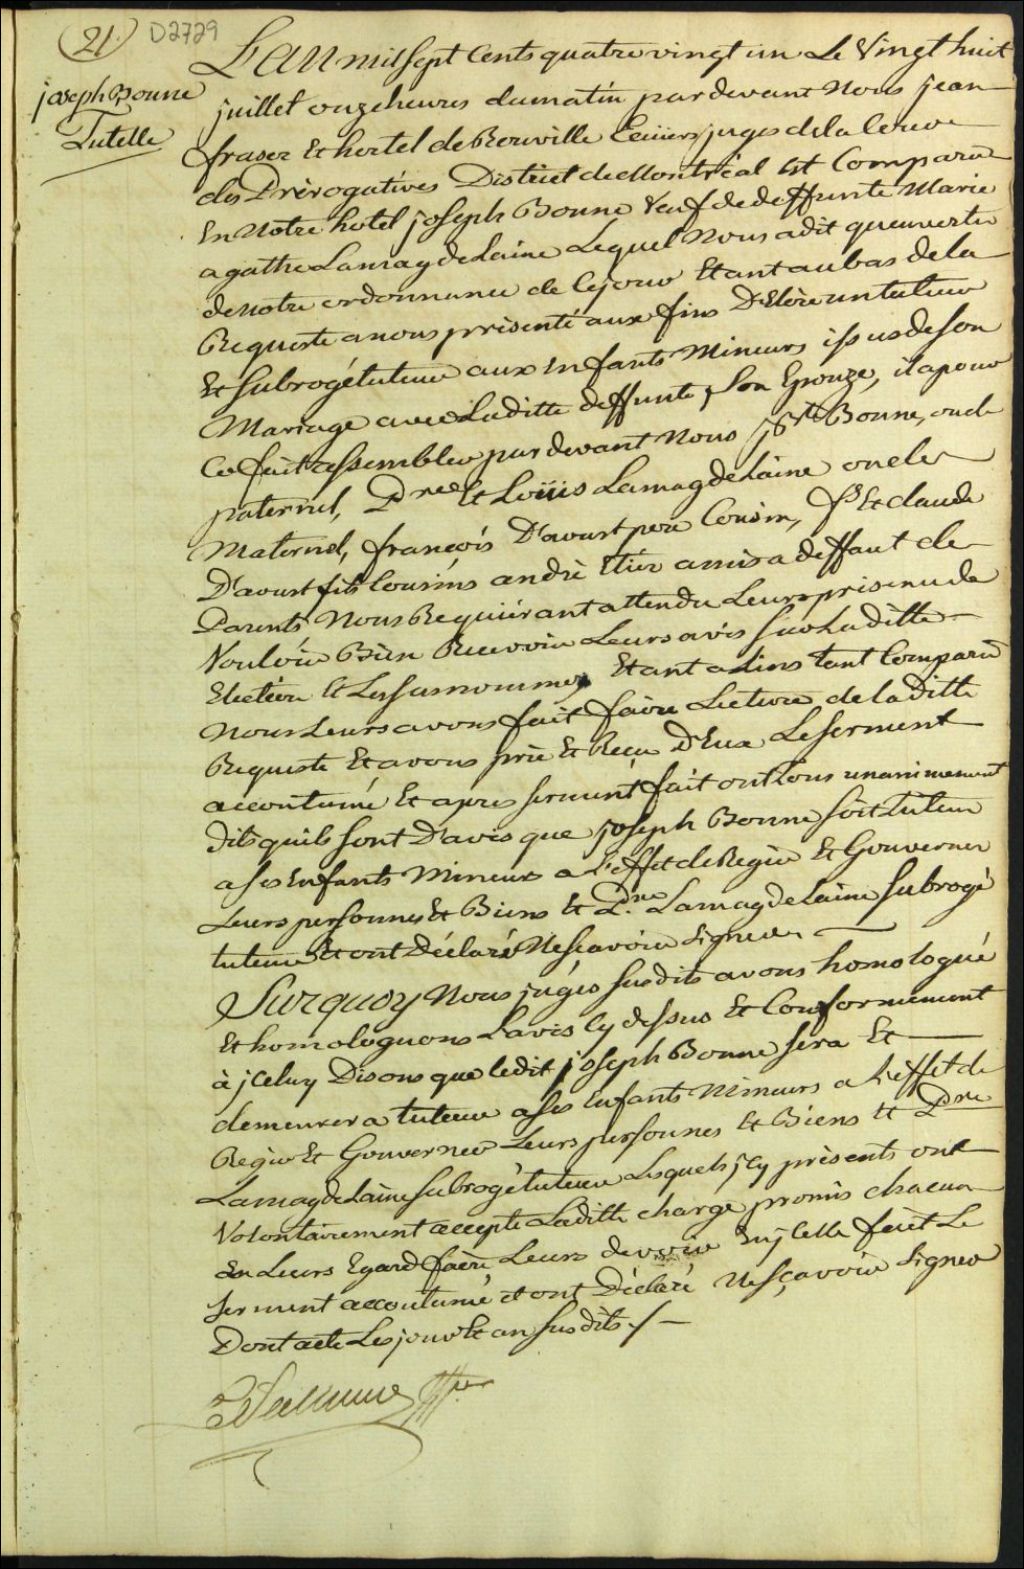 21. D2729
joseph Bonne
Tutelle
L'an mil sept Cents quatre vingt un Le Vingt huit
juillet onze heures du matin par devant Nous jean
fraser Et hertel de Rouville Ecuiers juges de la Cour
des Prérogatives District de Montréal Est Comparu
En Notre hotel joseph Bonne Veuf de deffunte Marie
agathe Lamagdelaine Lequel Nous a dit qu'en vertu
de notre ordonnance de Ce jour Etant au bas de la
Requeste a nous présenté aux fins D'Elire un tuteur
Et Subrogé tuteur aux Enfants Mineurs issus de son
Mariage avec Laditte deffunte Son Epouze, il a pour
Ce fait assembler par devant Nous jBte Bonne, oncle
paternel, Pre Et Loüis Lamagdelaine oncles
Maternel, françois D'aoust pere Cousin, fs Et claude
D'aoust fils Cousins andré Etier amis a deffaut de
Parents Nous Requierant attendu Leurs présence de
Vouloir Bien Recevoir Leurs avis sur Laditte
Election Et Les susnommes, Etant a Lins tant Comparu
Nous Leurs avons fait faire Lecture de la ditte
Requeste Et avons pris Et Reçu D'Eux Le serment
accoutumé Et apres serment fait ont tous unanimement
dits quils sont D'avis que joseph Bonne soit tuteur
a ses Enfants Mineurs a L'effet de Regir Et Gouverner
Leurs personnes Et Biens Et Pre Lamagdelaine subrogé
tuteur Et ont Déclaré Ne sçavoir signer
Surquoy Nous juges susdits avons homologué
Et homologuons L'avis Cy dessus Et Conformement
à jCeluy Disons que ledit joseph Bonne sera Et
demeurera tuteur a ses Enfants Mineurs a L'effet de
Regir Et Gouverner Leurs personnes Et Biens Et Pre
Lamagdelaine subrogé tuteur Lesquels jCy présents ont
Volontairement accepté Laditte charge promis chacun
En Leurs Egard faire Leurs devoir En jCelle fait Le
serment accoutumé et ont Déclaré Ne sçavoir signer
Dont acte Les jour Et an susdits ./